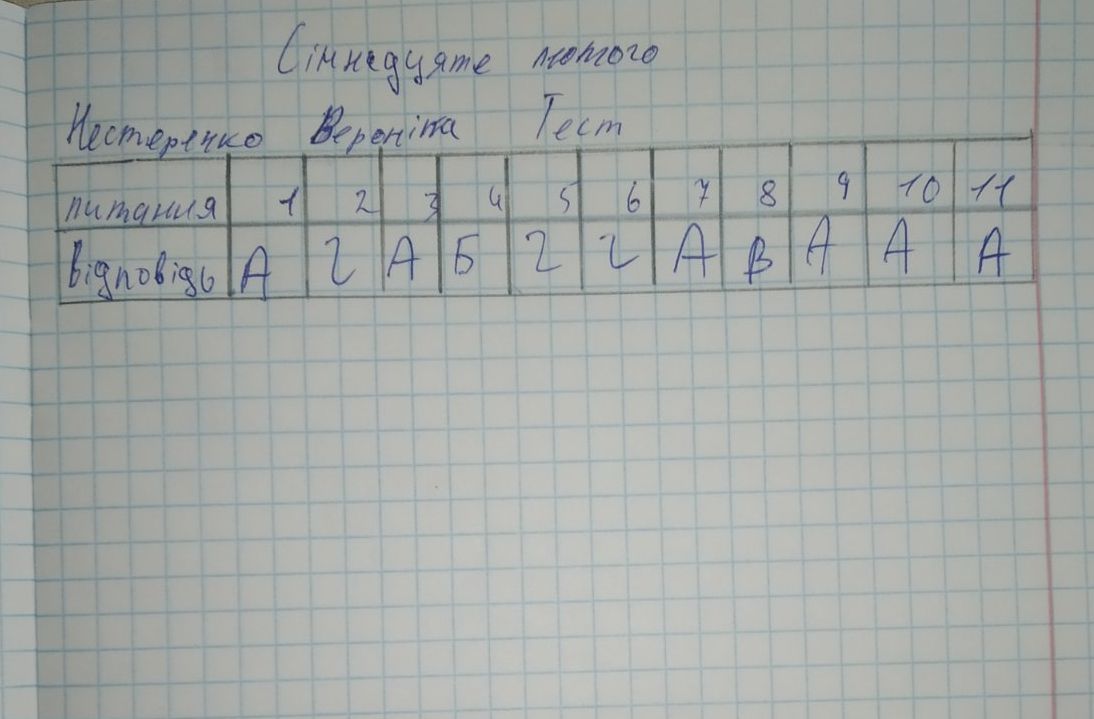 Сімнадцяте лютого
Нестеренко Вероніка Тест
питання 1 2 3 4 5 6 7 8 9 10 11
відповідь А г А Б г г А В А А А